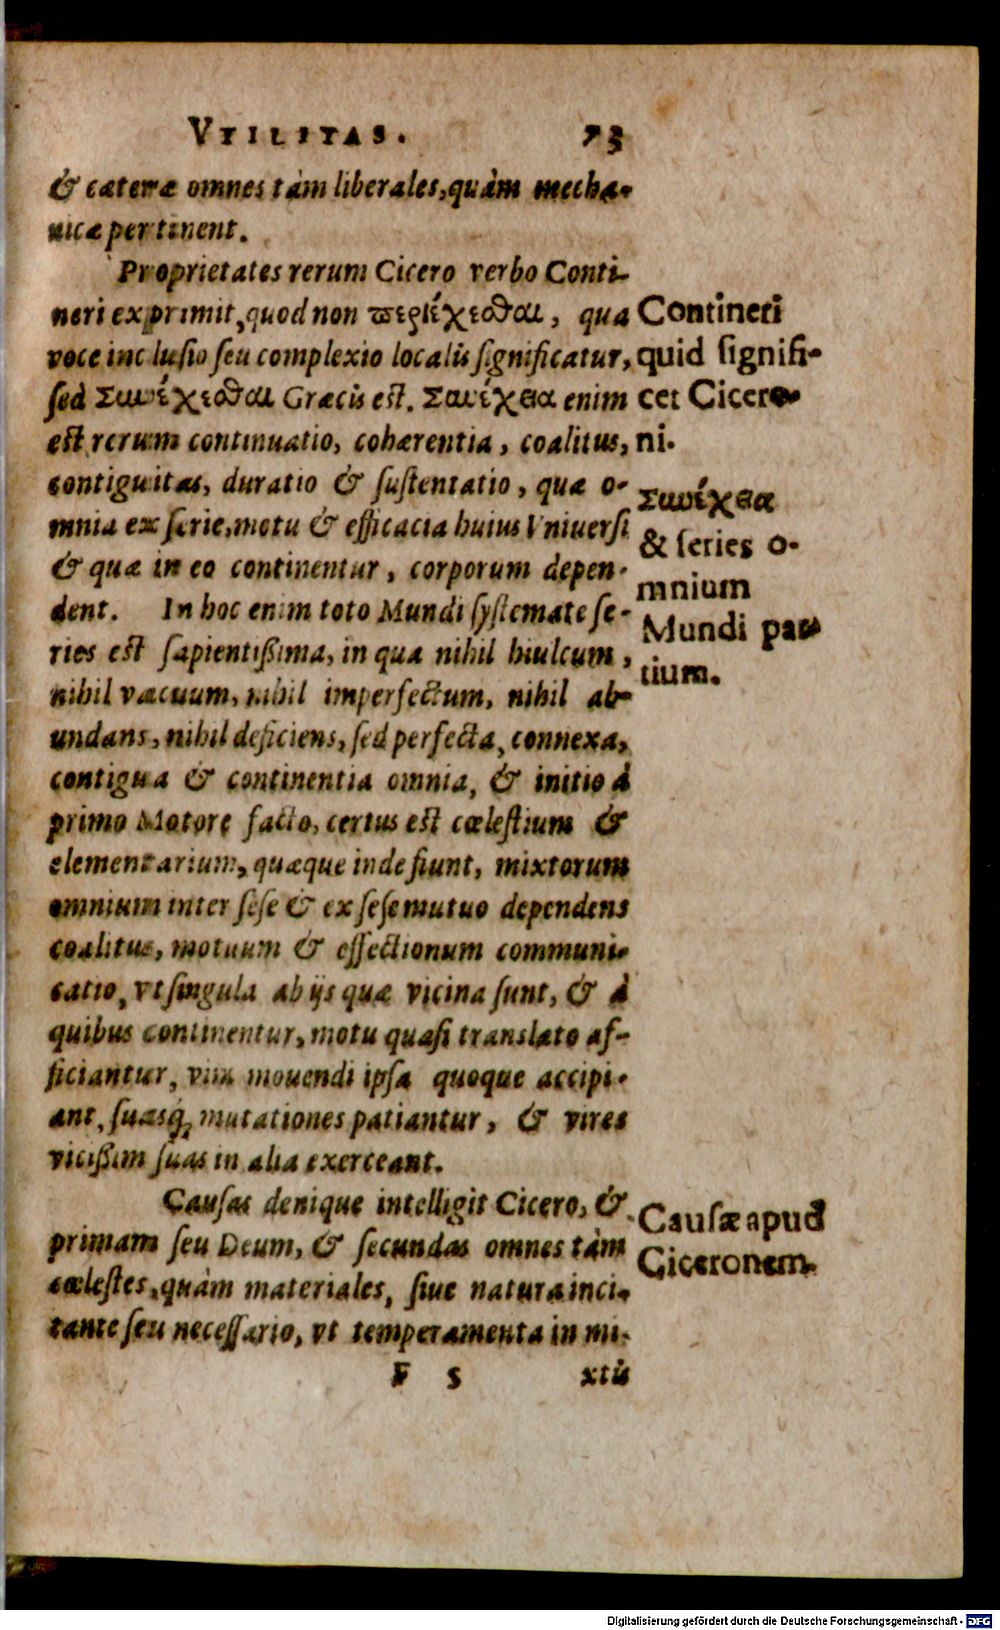 VTILITAS. 73
& cæteræ omnes tàm liberales, quàm mecha-
nicæ pertinent.
Proprietates rerum Cicero verbo Conti-
neri exprimit, quod non περιέχεσθαι, qua
voce inclusio seu complexio localis significatur,
sed Συνέχεσθαι Græcis est. Συνέχεια enim
est rerum continuatio, cohærentia, coalitus,
contiguitas, duratio & sustentatio, quæ o-
mnia ex serie, motu & efficacia huius Vniuersi
& quæ in eo continentur, corporum depen-
dent. In hoc enim toto Mundi systemate se-
ries est sapientißima, in qua nihil hiulcum,
nihil vacuum, nihil imperfectum, nihil ab-
undans, nihil deficiens, sed perfecta, connexa,
contigua & continentia omnia, & initio à
primo Motore facto, certus est cœlestium &
elementarium, quæque inde fiunt, mixtorum
omnium inter sese & ex sese mutuo dependens
coalitus, motuum & effectionum communi-
catio, vt singula ab ijs quæ vicina sunt, & à
quibus continentur, motu quasi translato af-
ficiantur, vim mouendi ipsa quoque accipi-
ant, suasq; mutationes patiantur, & vires
vicißim suas in alia exerceant.
Causas denique intelligit Cicero, &
primam seu Deum, & secundas omnes tàm
cœlestes, quàm materiales, siue natura inci-
tante seu necessario, vt temperamenta in mi-
F 5 xtis
Contineri
quid signifi-
cet Cicero-
ni.
Συνέχεια
& series o-
mnium
Mundi par-
tium.
Causæ apud
Ciceronem.
Digitalisierung gefördert durch die Deutsche Forschungsgemeinschaft - DFG